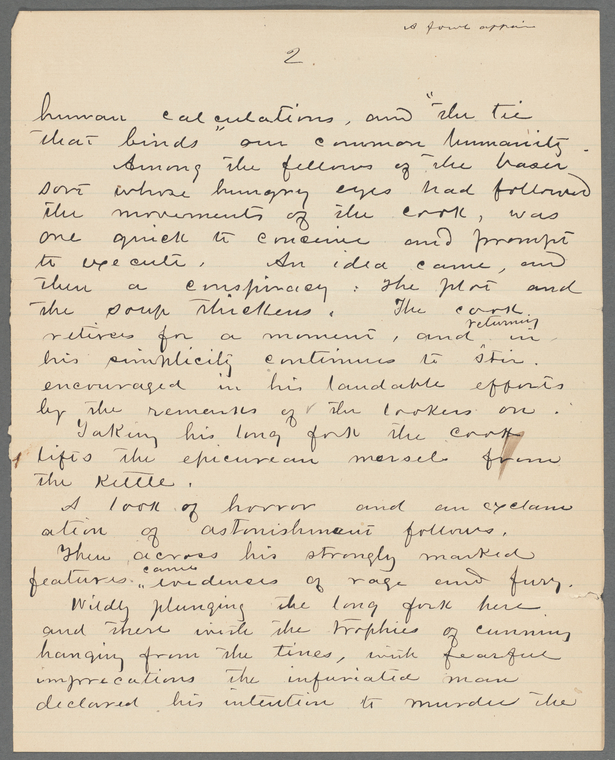 A fowl affair
2.
human calculations, and "the tie
that binds" our common humanity.
Among the fellows of the baser
sort whose hungry eyes had followed
the movements of the cook, was
one quick to conceive and prompt
to execute. An idea came, and
then a conspiracy: the plot and
the soup thickens. The cook
retires for a moment, and returning in
his simplicity continues to stir.
encouraged in his laudable efforts
by the remarks of the lookers on.
Taking his long fork the cook
lifts the epicurean morsel from
the kettle.
A look of horror and an exclam
ation of astonishment follows.
Then across his strongly marked
features came evidenses of rage and fury.
Wildly plunging the long fork here
and there with the trophies of cunning
hanging from the tines, with fearful
imprecations the infuriated man
declared his intention to murder the